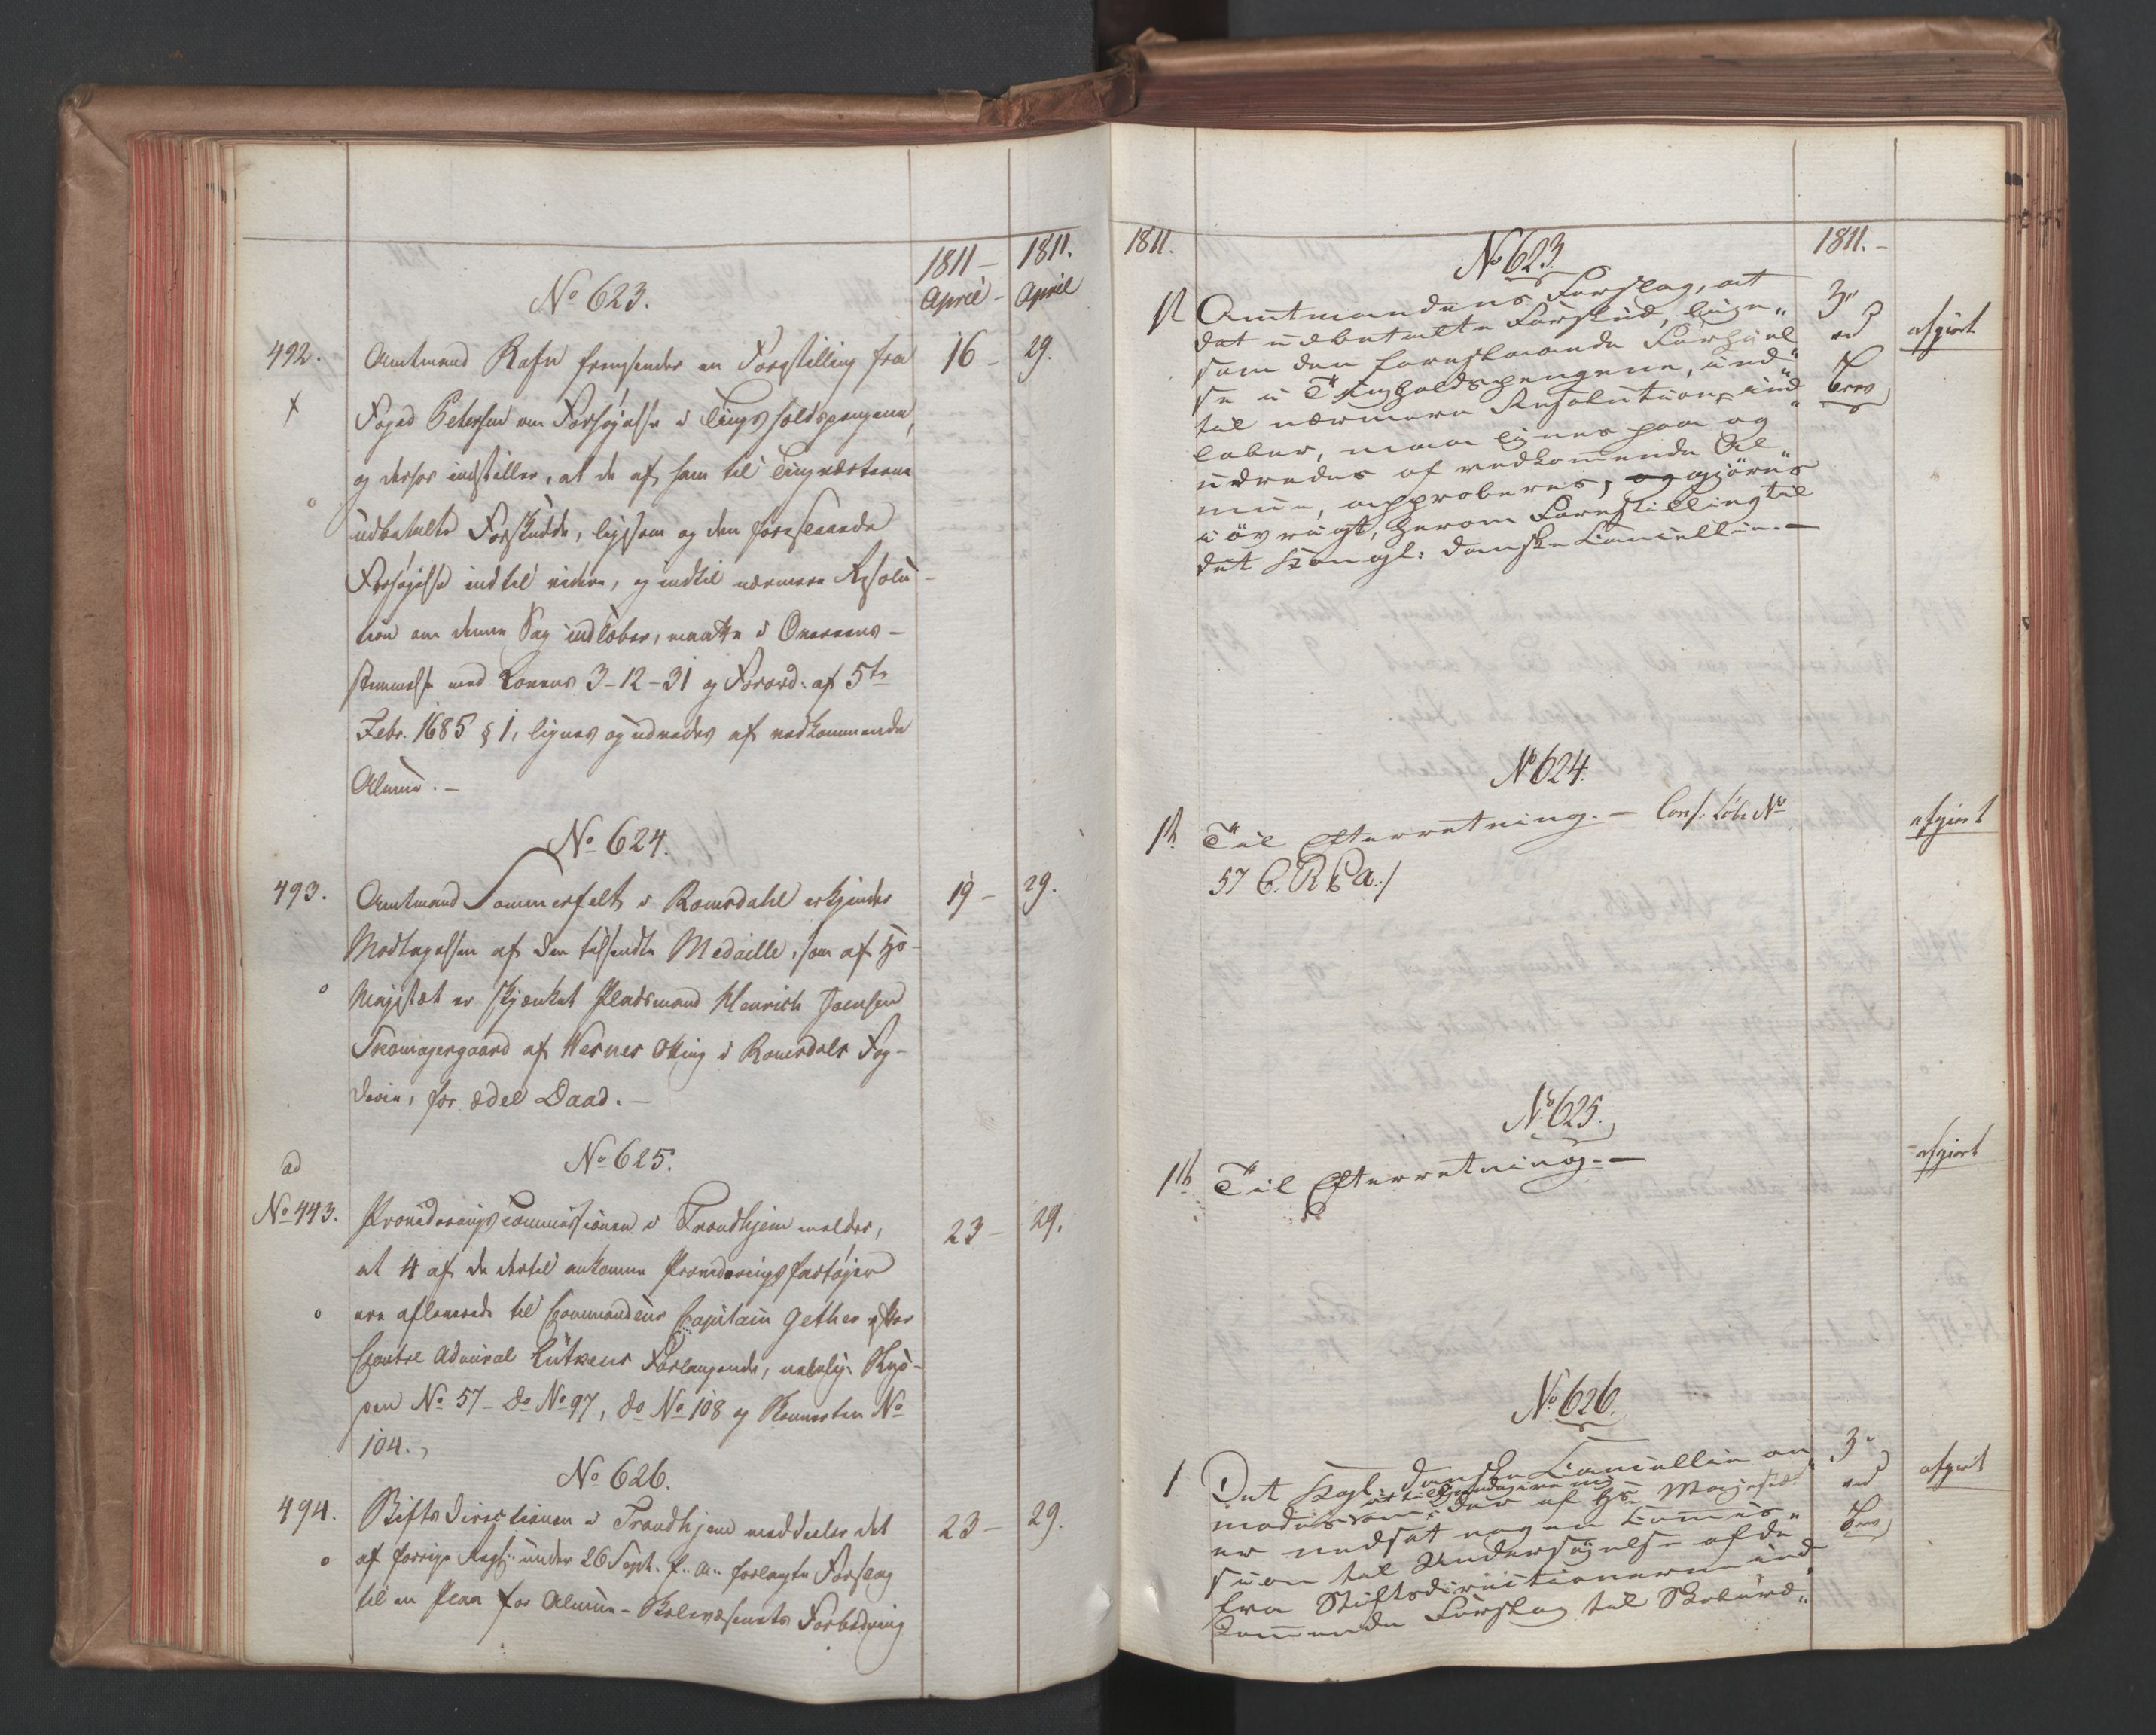 1811 –
1811.
April –
April
No 623.
492.
Amtmand Rafn fremsender en Forestilling fra
16 –
29.
Foged Petersen om Forhøjelse i Tingsholdspengene,
og derfor indstiller, at de af ham til Tingvidnerne
udbetalte Forskudde, ligesom og den foreslaaede
Forhøjelse indtil videre, og indtil nærmere Resolu-
tion om denne Sag indløber, maatte i Overeens-
stemmelse med Lovens 3-12-31 og Forord: af 5te
Febr. 1685 § 1, lignes og udredes af vedkommende
Almue. –
No 624.
493.
Amtmand Sommerfelt i Romsdahl erkjender
19 –
29.
Modtagelsen af den tilsendte Medaille, som af Hs
Majestæt er skjænket Pladsmand Henrich Joensen
Skomagergaard af Wernes Otting i Romsdals Fog-
derie, for ædel Daad. –
No 625.
ad
No 443.
Provideringscommissionen i Trondhjem melder,
23 –
29.
at 4 af de dertil ankomne Provideringsfartøjer
ere afleverede til Commandeur Capitain Gether efter
Contre Admiral Lütkens Forlangende, nemlig:
No 57 – Do No 97, Do No 108 og No
104.
No 626.
494.
Stiftsdirectionen i Trondhjem meddeeler det
23 –
29.
af forrige Regj: under 26 Sept. f. a. forlangte Forslag
til en Plan for Almue-Skolevæsenets Forbedring
1811.
No 623.
1811. –
Amtmandens Forslag, at
det udbetalte Forskud, lige„
som den foreslaaende Forhøiel
se i Tingholdspengene, ind„
til nærmere Resolution ind
løber, maa lignes paa og
udredes af vedkommende Al„
mue, approberes, og gjøres
i øvrigt, herom Forestilling til
det Kongl: danske Cancellie. –
3die
afgiort
No 624.
Til Efterretning. – Conf. Litr: No
57 C. R &a./
afgiort
No 625.
Til Efterretning. –
afgiort
No 626.
1
Det Kgl. danske Cancellie an
modes at tilkjendegive mig
om der af Hs Majestæt
er nedsat nogen Commis„
sion til Undersøgelse af de
fra Stiftsdirectionerne ind
kommende Forslag til Skolevæ„
afgiort